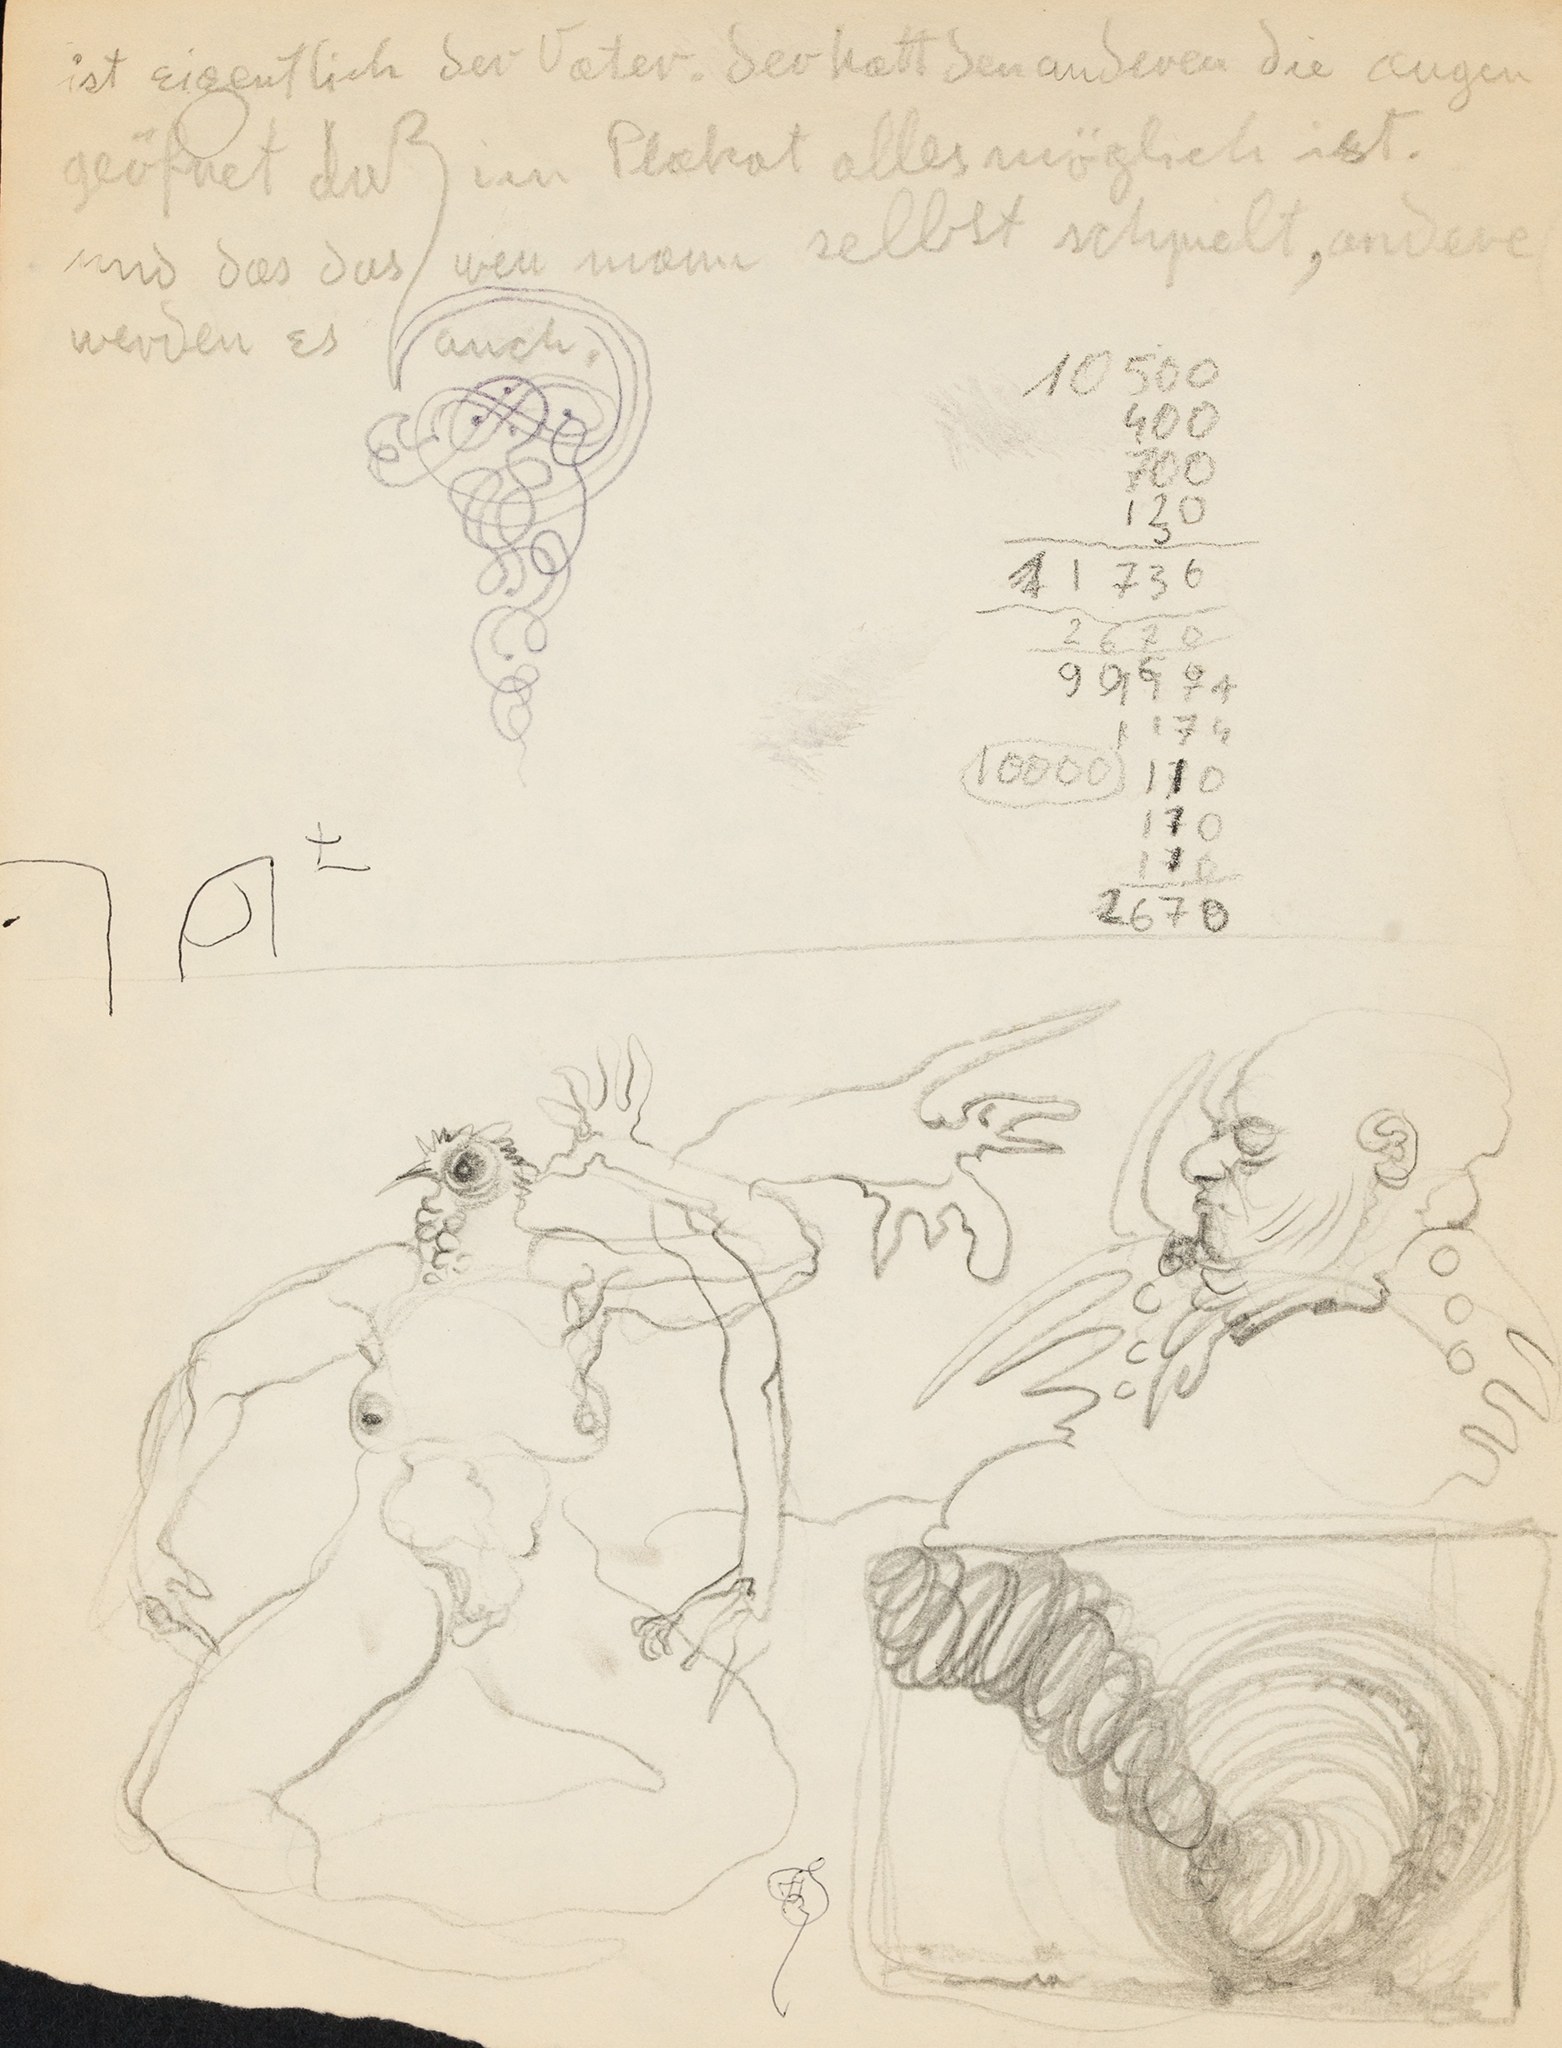 ist eigentlich der Vater. der hatt den anderen die augen
geöfnet daß im Plakat alles möglich ist.
und das das wen mann selbst schpielt, andere
werden es auch.
10 500
400
700
120
11736
2620
1174
10000 110
170
110
2670